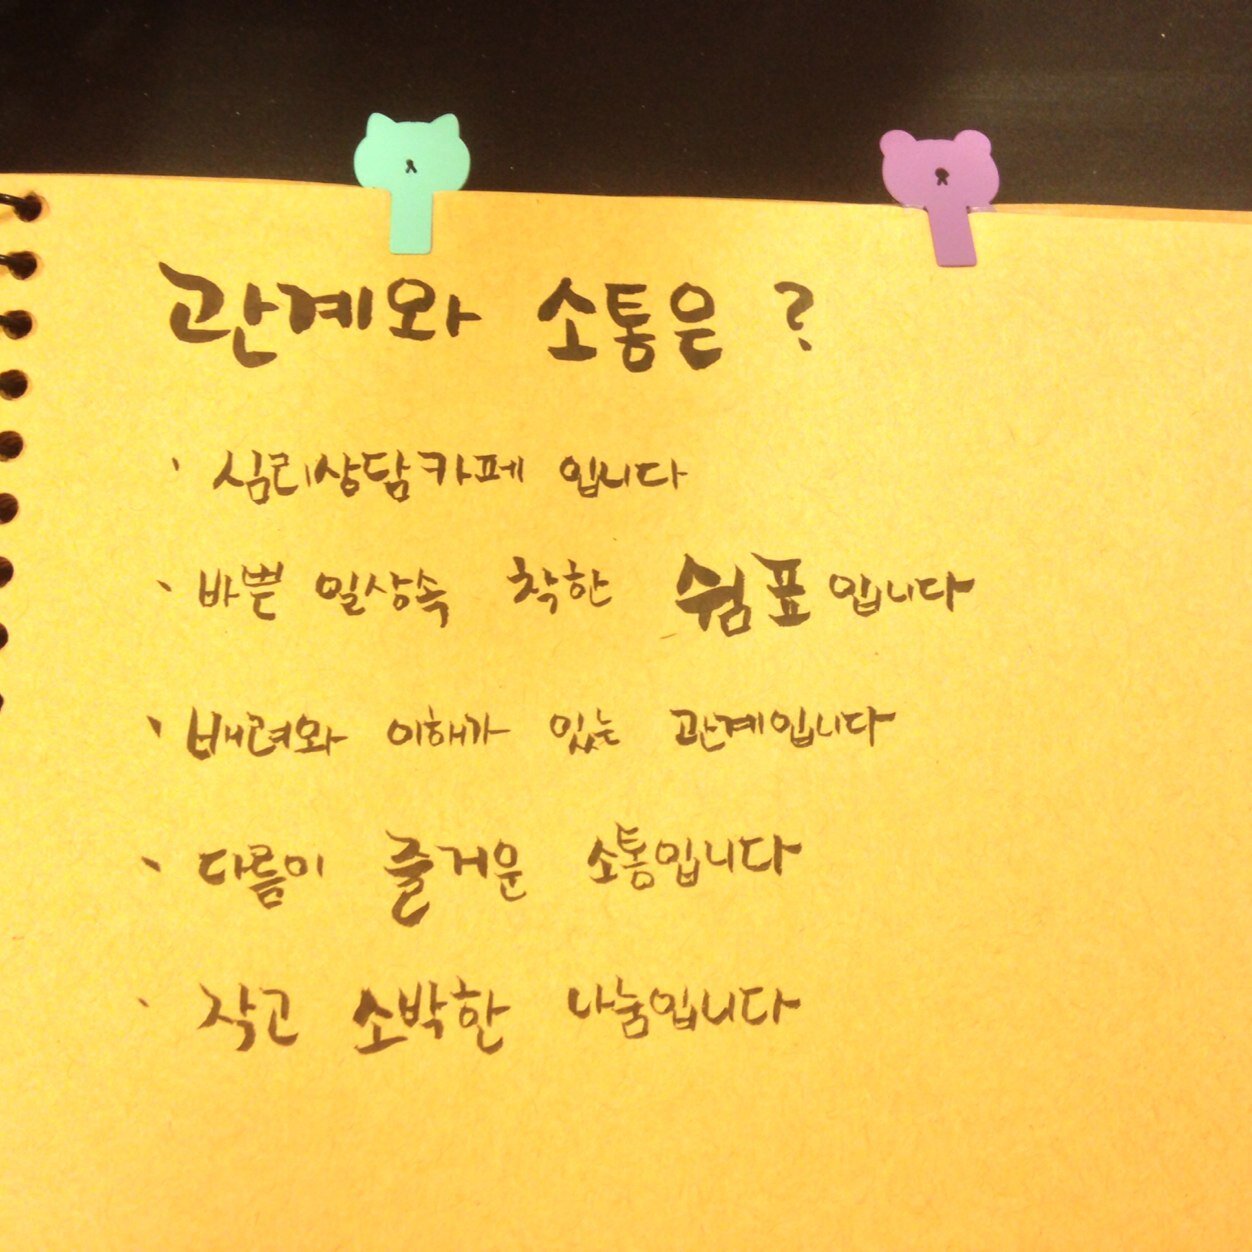 관계와 소통은 ?
· 심리상담카페 입니다
· 바쁜 일상속 착한 쉼표입니다
· 배려와 이해가 있는 관계입니다
· 다름이 즐거운 소통입니다
· 작고 소박한 나눔입니다